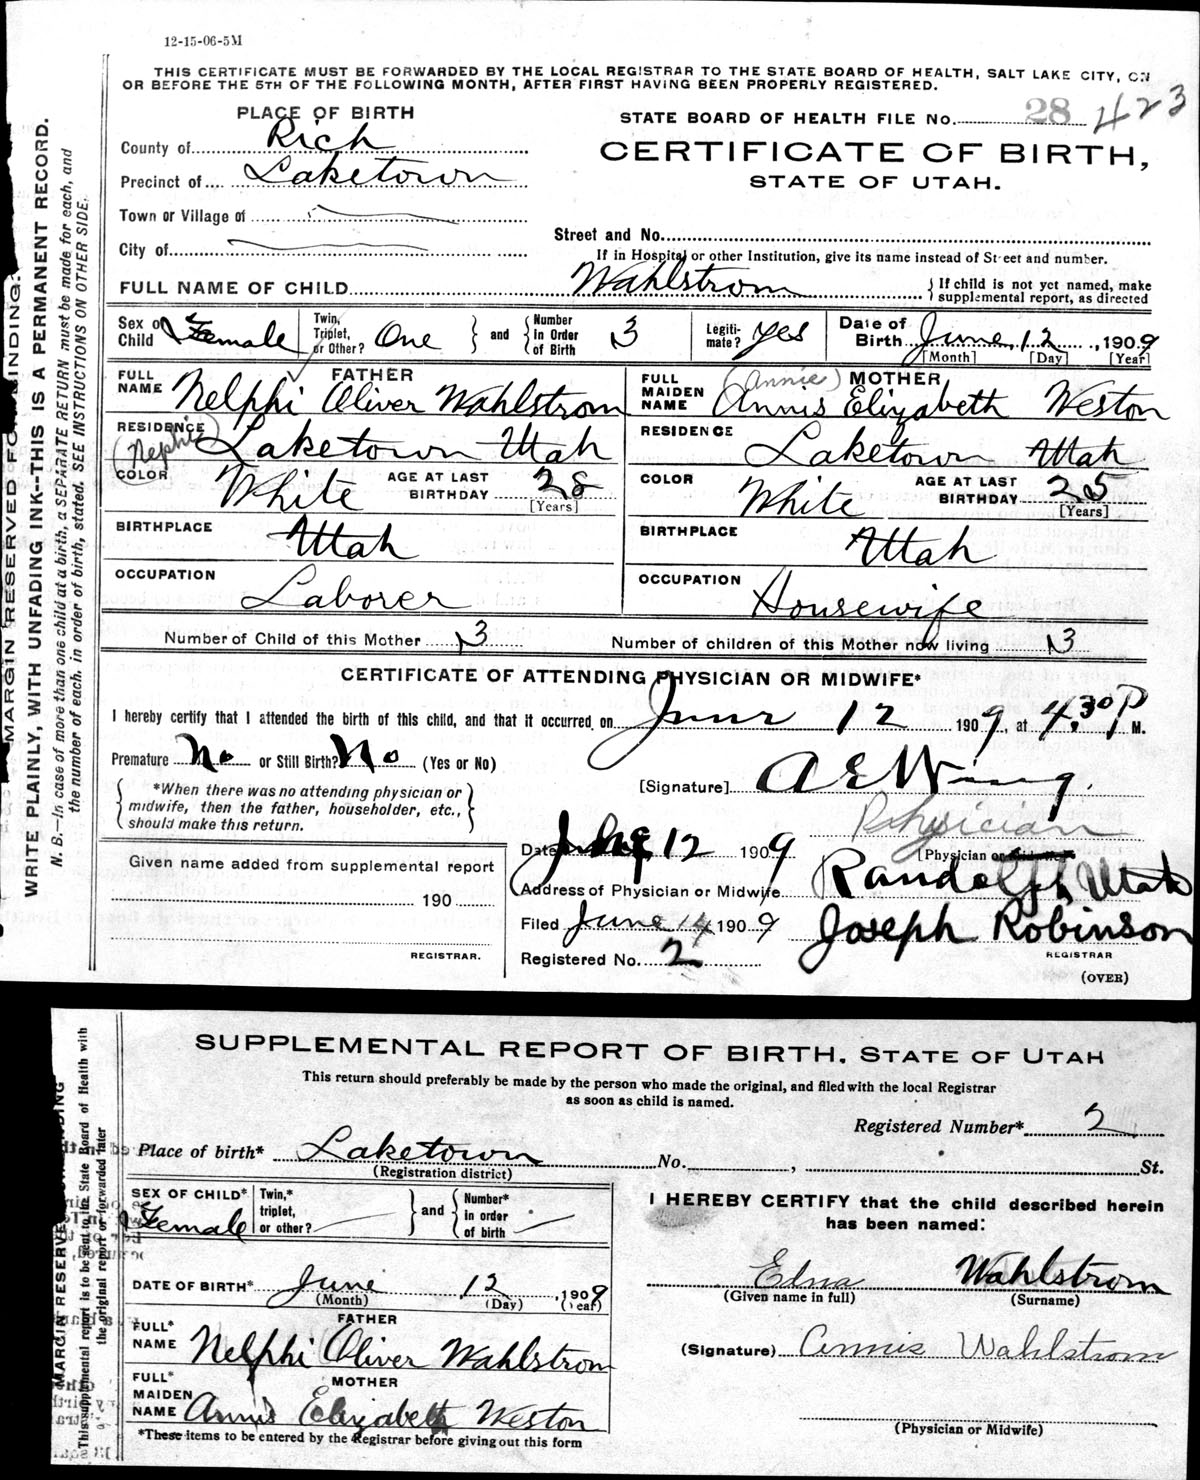 12-15-06-5M
THIS CERTIFICATE MUST BE FORWARDED BY THE LOCAL REGISTRAR TO THE STATE BOARD OF HEALTH, SALT LAKE CITY, ON
OR BEFORE THE 5TH OF THE FOLLOWING MONTH, AFTER FIRST HAVING BEEN PROPERLY REGISTERED.
MARGIN RESERVED FOR BINDING.
WRITE PLAINLY, WITH UNFADING INK--THIS IS A PERMANENT RECORD.
N. B.—In case of more than one child at a birth, a SEPARATE RETURN must be made for each, and
the number of each, in order of birth, stated. SEE INSTRUCTIONS ON OTHER SIDE.
PLACE OF BIRTH
County of Rich
Precinct of Laketown
Town or Village of
City of
STATE BOARD OF HEALTH FILE No. 28 423
CERTIFICATE OF BIRTH,
STATE OF UTAH.
Street and No.
If in Hospital or other Institution, give its name instead of Street and number.
FULL NAME OF CHILD Wahlstrom { If child is not yet named, make
supplemental report, as directed
Sex of Child Female
Twin, Triplet, or Other? One } and { Number in Order of Birth 3
Legitimate? Yes
Date of Birth June 12, 1909
[Month] [Day] [Year]
FATHER
FULL NAME Nelphi Oliver Wahlstrom
(Nephi)
RESIDENCE Laketown Utah
COLOR White AGE AT LAST BIRTHDAY 28
[Years]
BIRTHPLACE Utah
OCCUPATION Laborer
MOTHER
(Annie)
FULL MAIDEN NAME Annis Elizabeth Weston
RESIDENCE Laketown Utah
COLOR White AGE AT LAST BIRTHDAY 25
[Years]
BIRTHPLACE Utah
OCCUPATION Housewife
Number of Child of this Mother 3 Number of children of this Mother now living 3
CERTIFICATE OF ATTENDING PHYSICIAN OR MIDWIFE*
I hereby certify that I attended the birth of this child, and that it occurred on June 12 1909, at 4.30 P M.
Premature No or Still Birth? No (Yes or No)
*When there was no attending physician or
midwife, then the father, householder, etc.,
should make this return.
[Signature] A E W
Physician
[Physician or Midwife
Date June 12 1909
Address of Physician or Midwife Randolph, Utah
Filed June 14 1909 Joseph Robinson
REGISTRAR
Registered No. 2
(OVER)
Given name added from supplemental report
190
REGISTRAR.
SUPPLEMENTAL REPORT OF BIRTH. STATE OF UTAH
This return should preferably be made by the person who made the original, and filed with the local Registrar
as soon as child is named.
MARGIN RESERVED FOR BINDING
This supplemental report is to be sent to the State Board of Health with
the original report or forwarded later
Registered Number* 2
Place of birth* Laketown No. , St.
(Registration district)
SEX OF CHILD* Female
Twin,* triplet, or other? } and { Number* in order of birth
DATE OF BIRTH* June 12, 1909
(Month) (Day) (Year)
FATHER
FULL* NAME Nelphi Oliver Wahlstrom
MOTHER
FULL* MAIDEN NAME Annis Elizabeth Weston
*These items to be entered by the Registrar before giving out this form
I HEREBY CERTIFY that the child described herein
has been named:
Edna Wahlstrom
(Given name in full) (Surname)
(Signature) Annis Wahlstrom
(Physician or Midwife)